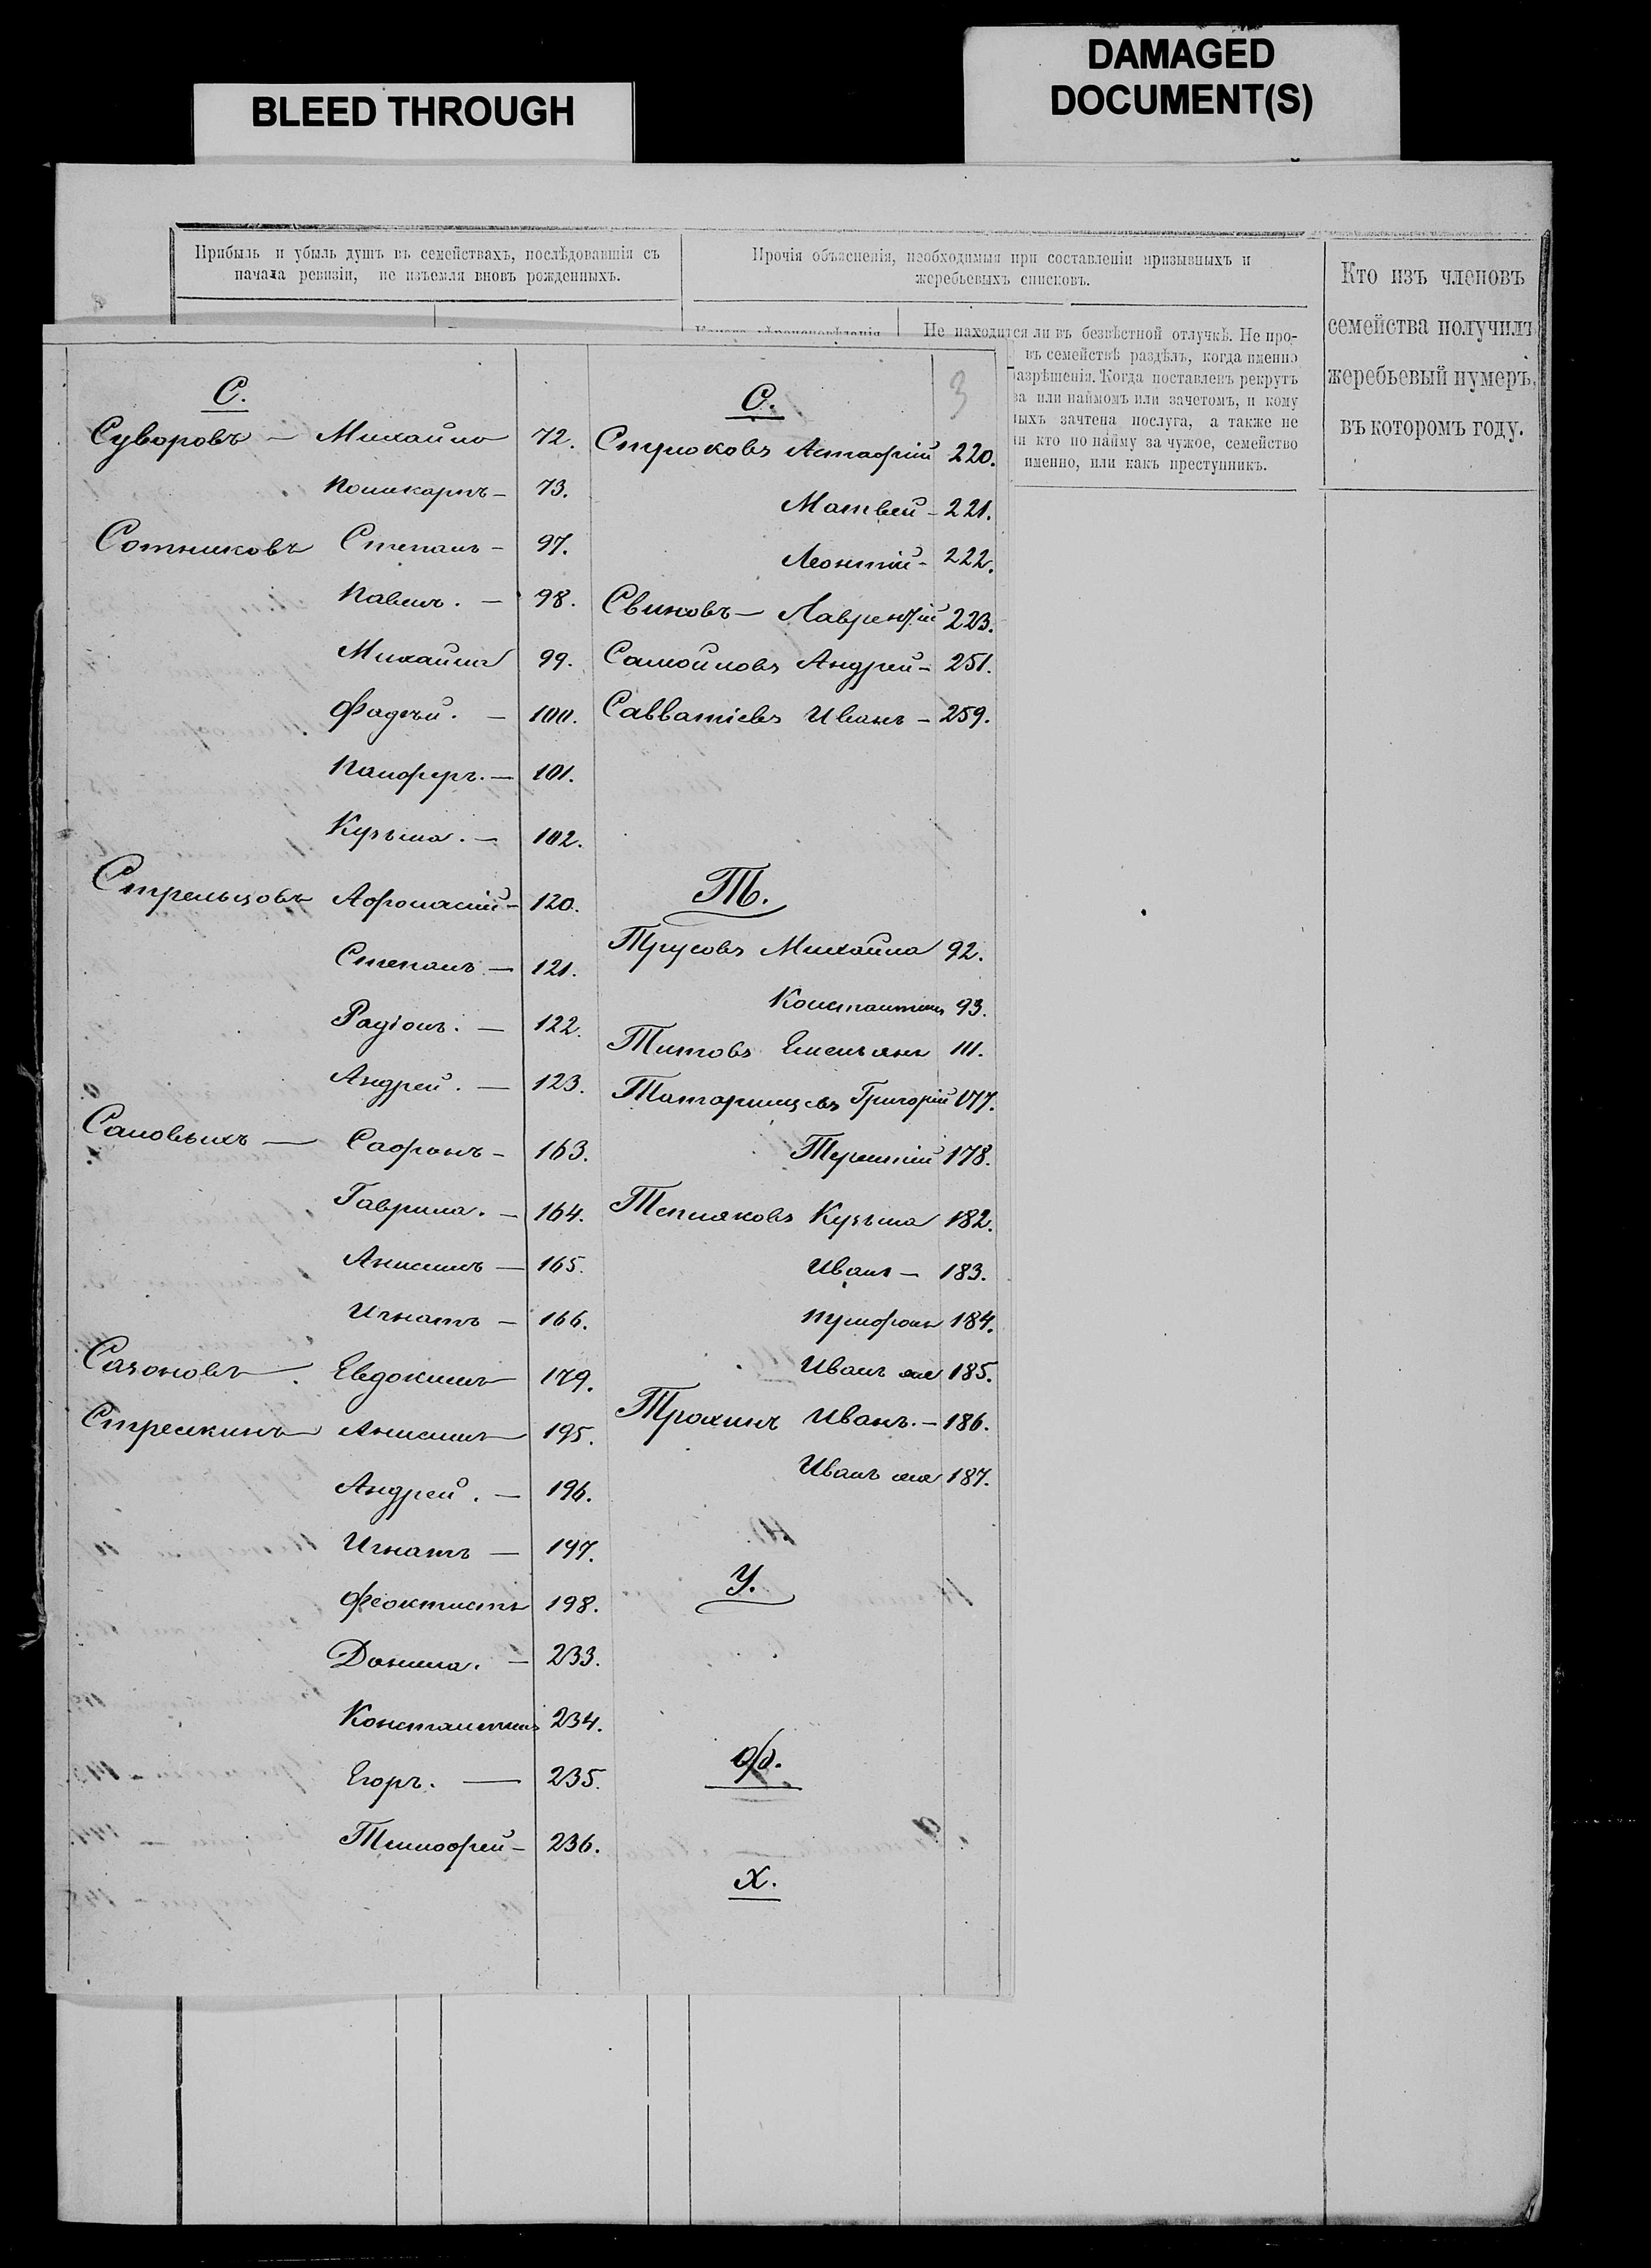 BLEED THROUGH
DAMAGED
DOCUMENT(S)
Прибыль и убыль душъ въ семействахъ, послѣдовавшія съ
начала ревизіи, не изъемля вновь рожденныхъ.
Прочія объясненія, необходимыя при составленіи призывныхъ и
жеребьевыхъ списковъ.
Кто изъ членовъ
семейства получилъ
жеребьевый нумеръ,
въ которомъ году.
Не находится ли въ безвѣстной отлучкѣ. Не про-
въ семействѣ раздѣлъ, когда именно
разрѣшенія. Когда поставленъ рекрутъ
или наймомъ или зачетомъ, и кому
зачтена послуга, а также не
кто по найму за чужое, семейство
именно, или какъ преступникъ.
3
С.
Суворовъ — Михайло 72.
Поликарпъ — 73.
Сотниковъ Степанъ — 97.
Павелъ. — 98.
Михайла 99.
Фадѣй. — 100.
Панферъ. — 101.
Кузьма. — 102.
Стрельцовъ Афонасий — 120.
Степанъ — 121.
Радіонъ. — 122.
Андрей. — 123.
Сафронъ — 163.
Гаврила. — 164.
Анисимъ — 165.
Игнатъ — 166.
Сазоновъ. Евдокимъ 179.
Стрелкинъ Анисимъ 195.
Андрей. — 196.
Игнатъ — 197.
Феоктистъ 198.
Данила. — 233.
Константинъ 234.
Егоръ. — 235.
Тимофей — 236.
С.
Стрюковъ Астафий 220.
Матвей — 221.
Леонтий — 222.
Свиновъ — Лаврентій 223.
Самойловъ Андрей — 251.
Савватіевъ Иванъ — 259.
Т.
Трусовъ Михайла 92.
Константинъ 93.
Титовъ Емельянъ 111.
Татаринцевъ Григорій 177.
178.
Тепляковъ Кузьма 182.
Иванъ — 183.
184.
Иванъ 185.
Трохинъ Иванъ. — 186.
Иванъ 187.
У.
Ф.
Х.